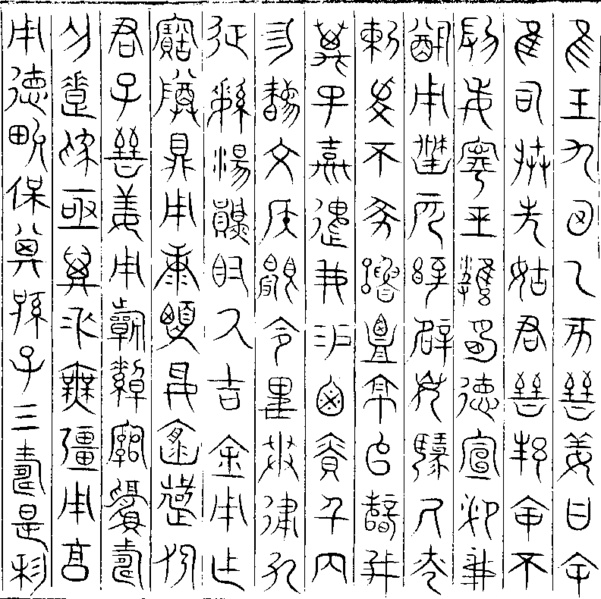 隹王九月乙亥晉姜曰余
隹司朕先姑君晉邦余不
叚妄寧巠雝明德宣邲我
猷用召匹辝辟每揚厥光
剌虔不墜魯覃京師辥我
萬民嘉遣我易鹵責千兩
勿灋文侯顯令卑貫通弘
征繁湯取厥吉金用乍
寶尊鼎用康柔妥懷遠邇
君子晉姜用祈綽綰眉壽
乍疐為亟萬年無疆用享
用德畯保其孫子三壽是利